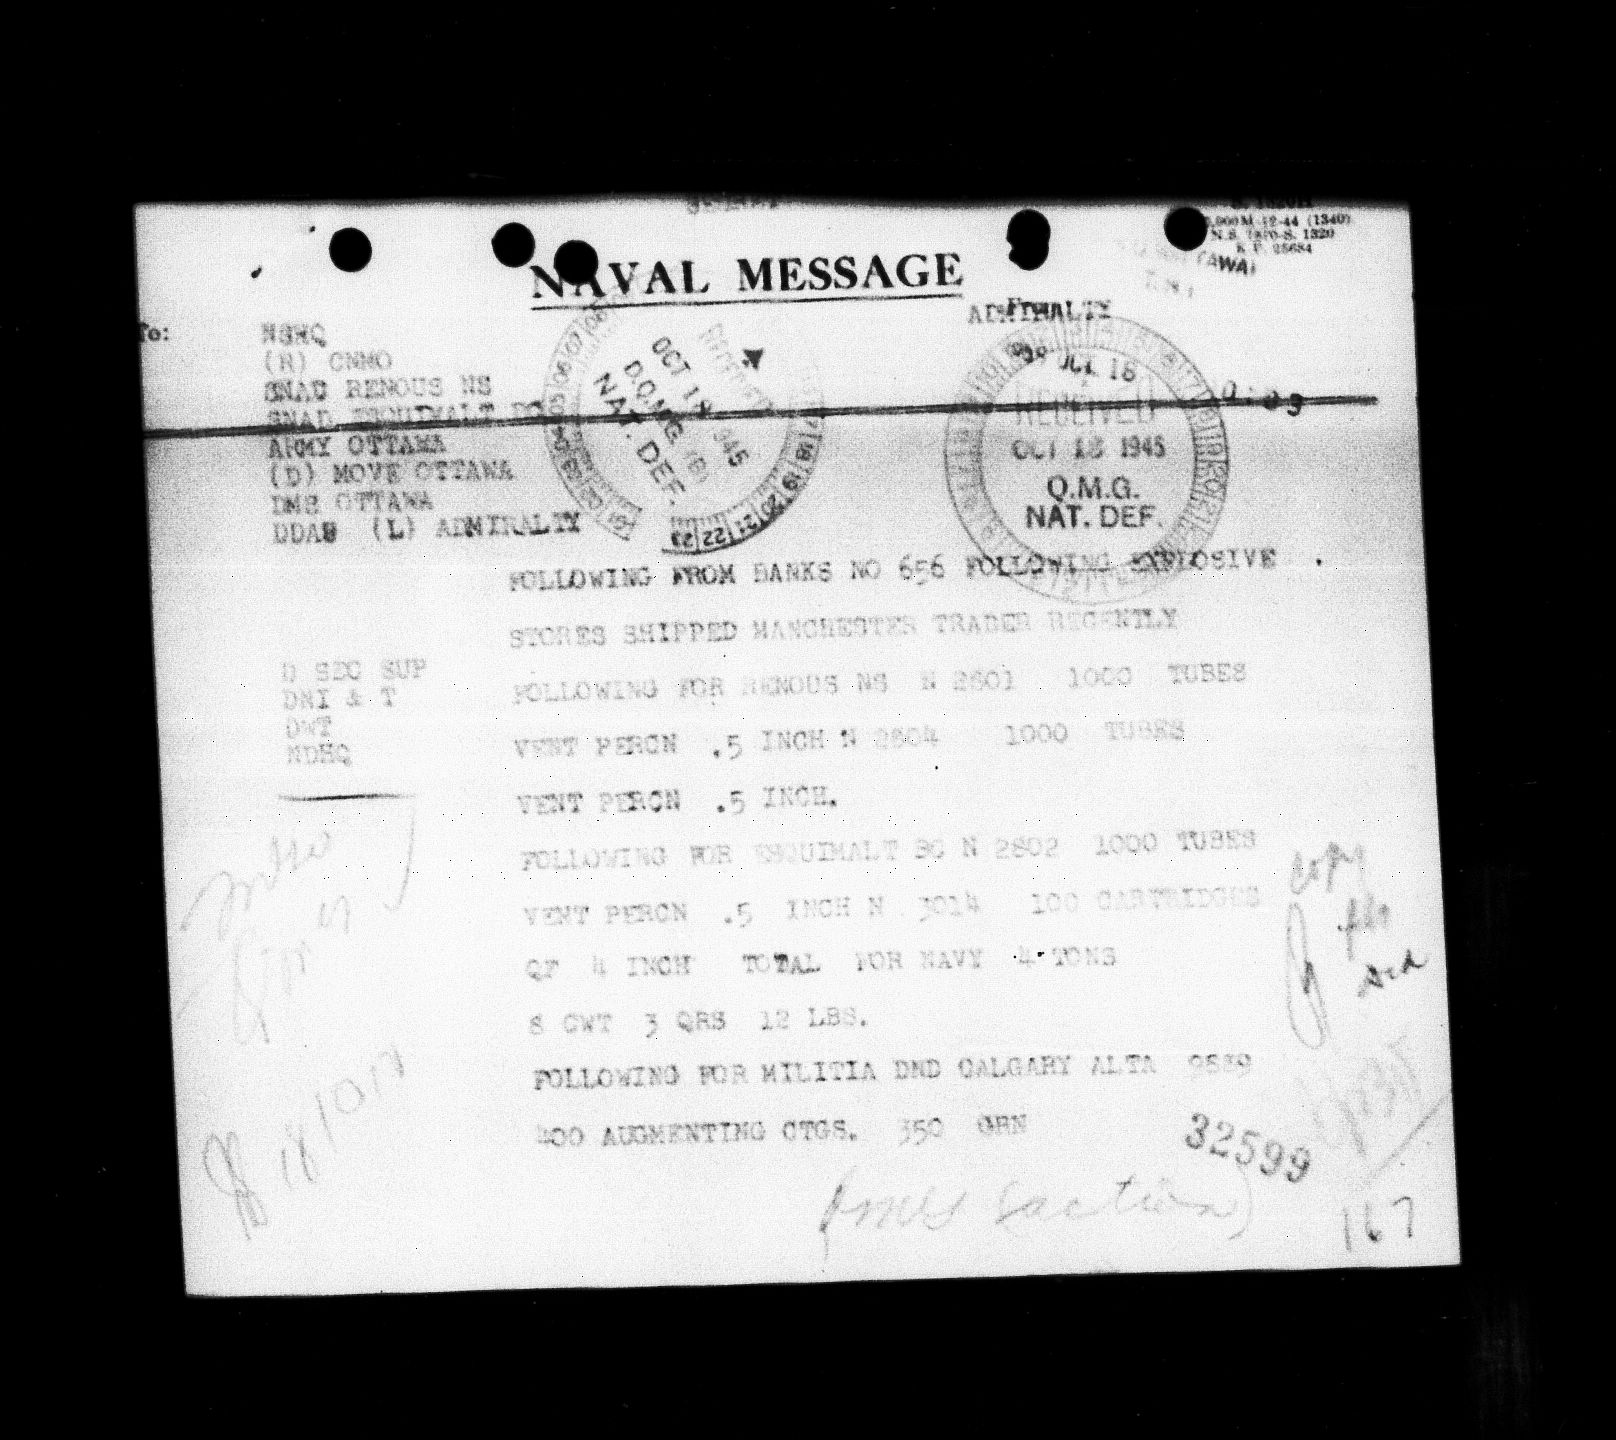 N.S. 1320-S. 1320
NAVAL MESSAGE
ADMIRALTY
To:
NSHQ
(R) CNMO
SNAD RENOUS NS
SNAD ESQUIMALT BC
ARMY OTTAWA
(D) MOVE OTTAWA
DME OTTAWA
DDAS (L) ADMIRALTY
OCT 1 1945
D.Q.M.G. (B)
NAT. DEF.
OCT 18
RECEIVED
OCT 18 1945
Q.M.G.
NAT. DEF.
FOLLOWING FROM BANKS NO 656 FOLLOWING EXPLOSIVE
STORES SHIPPED MANCHESTER TRADER RECENTLY
FOLLOWING FOR RENOUS NS N 2801 1000 TUBES
VENT PERCN .5 INCH N 2804 1000 TUBES
VENT PERCN .5 INCH.
FOLLOWING FOR ESQUIMALT BC N 2802 1000 TUBES
VENT PERCN .5 INCH N 3014 100 CARTRIDGES
QF 4 INCH TOTAL FOR NAVY 4 TONS
8 CWT 3 QRS 12 LBS.
FOLLOWING FOR MILITIA DND CALGARY ALTA
400 AUGMENTING CTGS. 350 GRN
D SEC SUP
DNI & T
DWT
NDHQ
copy
32599
section)
167